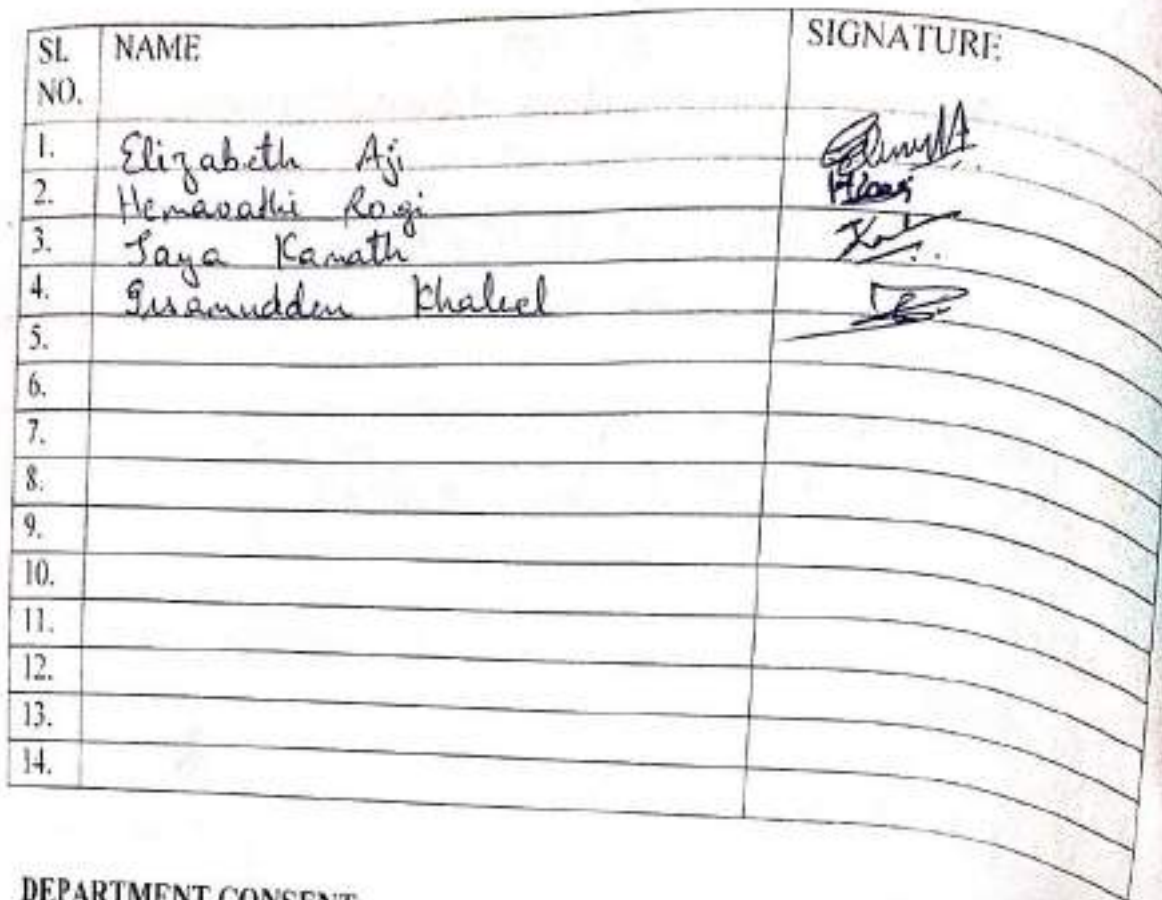 SL NO. NAME SIGNATURE
1. Elizabeth Aji
2. Hemavathi Rogi
3. Jaya Kamath
4. Khaleel
5.
6.
7.
8.
9.
10.
11.
12.
13.
14.
DEPARTMENT CONSENT